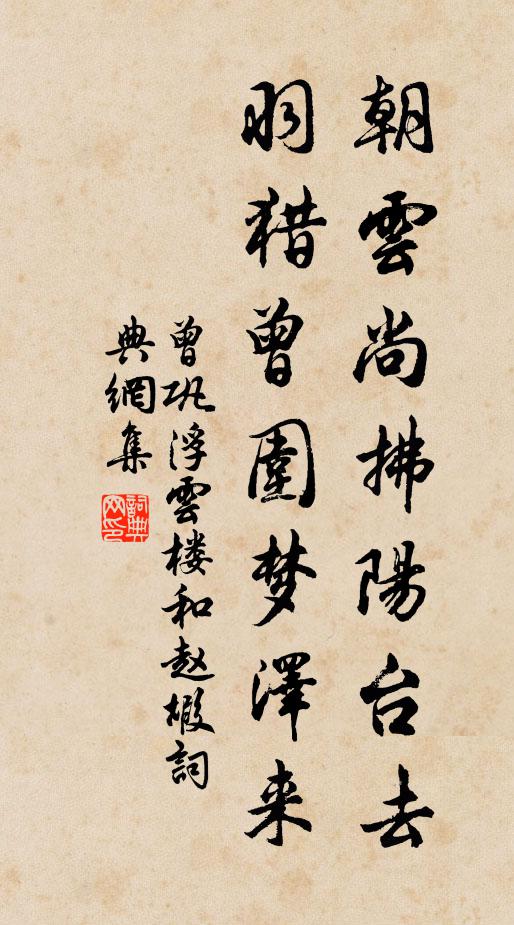 朝雲尚拂陽台去
羽猎曾圍梦澤来
曾巩浮雲楼和赵嘏詞
典網集
詞典網印